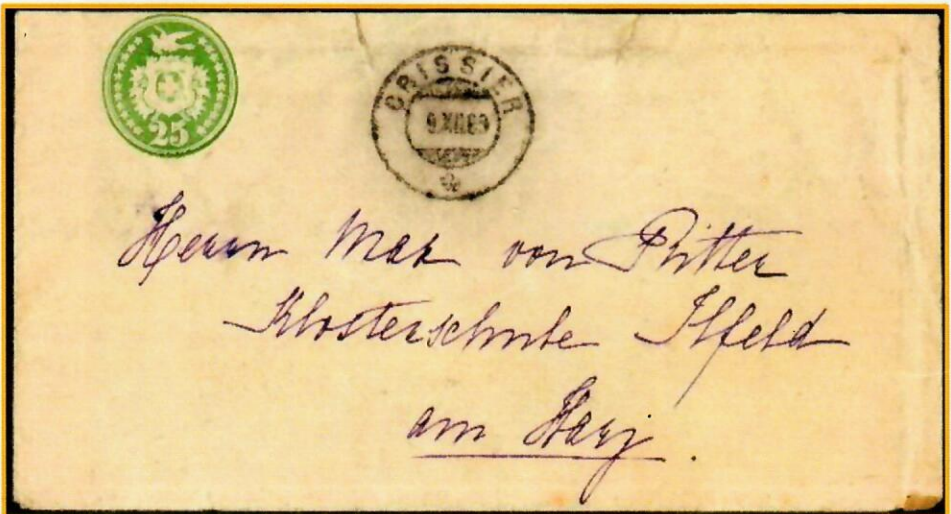 25
CRISSIER
9.XII.89
Herrn Max von Ritter
Klosterschule Ilfeld
am Harz.